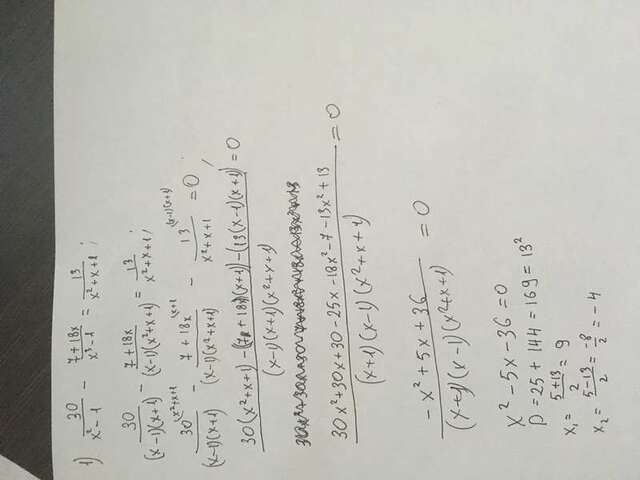 1) 30/(x²-1) - (7+18x)/(x³-1) = 13/(x²+x+1);
30/((x-1)(x+1)) - (7+18x)/((x-1)(x²+x+1)) = 13/(x²+x+1);
30^(x²+x+1/((x-1)(x+1)) - (7+18x)^(x+1/((x-1)(x²+x+1)) - 13^((x-1)(x+1)/(x²+x+1) = 0;
(30(x²+x+1) - (7+18x)(x+1) - (13(x-1)(x+1))/((x-1)(x+1)(x²+x+1)) = 0
(30x²+30x+30-25x-18x²-7-13x²+13)/((x+1)(x-1)(x²+x+1)) = 0
(-x²+5x+36)/((x+1)(x-1)(x²+x+1)) = 0
x²-5x-36=0
D=25+144=169=13²
x₁=(5+13)/2=9
x₂=(5-13)/2=-8/2=-4